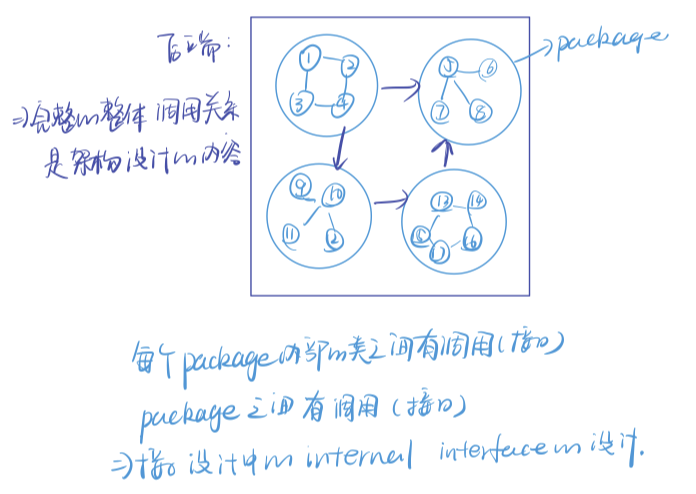 后端：
package
⇒完整的整体调用关系
是架构设计的内容
① ②
③ ④
⑤ ⑥
⑦ ⑧
⑨ ⑩
⑪ ②
⑬ ⑭
⑮ ⑰ ⑯
每个package内部的类之间有调用(接口)
package之间有调用(接口)
⇒接口设计中的internal interface的设计.